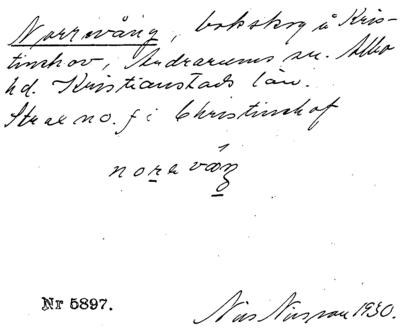 Norrevång, bokskog å Kris-
tinehov, Andrarums sn. Albo
hd. Kristianstads län.
Strax no. f i Christinehof
nora våŋ
Nr 5897.
Nils Nilsson 1930.